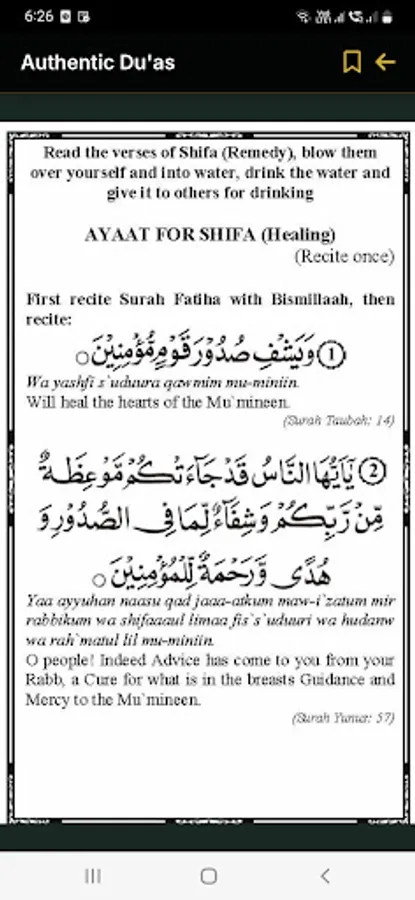 6:26
Authentic Du'as
Read the verses of Shifa (Remedy), blow them
over yourself and into water, drink the water and
give it to others for drinking
AYAAT FOR SHIFA (Healing)
(Recite once)
First recite Surah Fatiha with Bismillaah, then
recite:
① وَيَشْفِ صُدُوْرَ قَوْمٍ مُّؤْمِنِيْنَ ○
Wa yashfi s`uduura qawmim mu-miniin.
Will heal the hearts of the Mu`mineen.
(Surah Taubah: 14)
② يٰٓاَيُّهَا النَّاسُ قَدْ جَآءَتْكُمْ مَّوْعِظَةٌ
مِّنْ رَّبِّكُمْ وَشِفَآءٌ لِّمَا فِى الصُّدُوْرِ وَ
هُدًى وَّرَحْمَةٌ لِّلْمُؤْمِنِيْنَ ○
Yaa ayyuhan naasu qad jaaa-atkum maw-i`zatum mir
rabbikum wa shifaaaul limaa fis`s`uduuri wa hudanw
wa rah`matul lil mu-miniin.
O people! Indeed Advice has come to you from your
Rabb, a Cure for what is in the breasts Guidance and
Mercy to the Mu`mineen.
(Surah Yunus: 57)